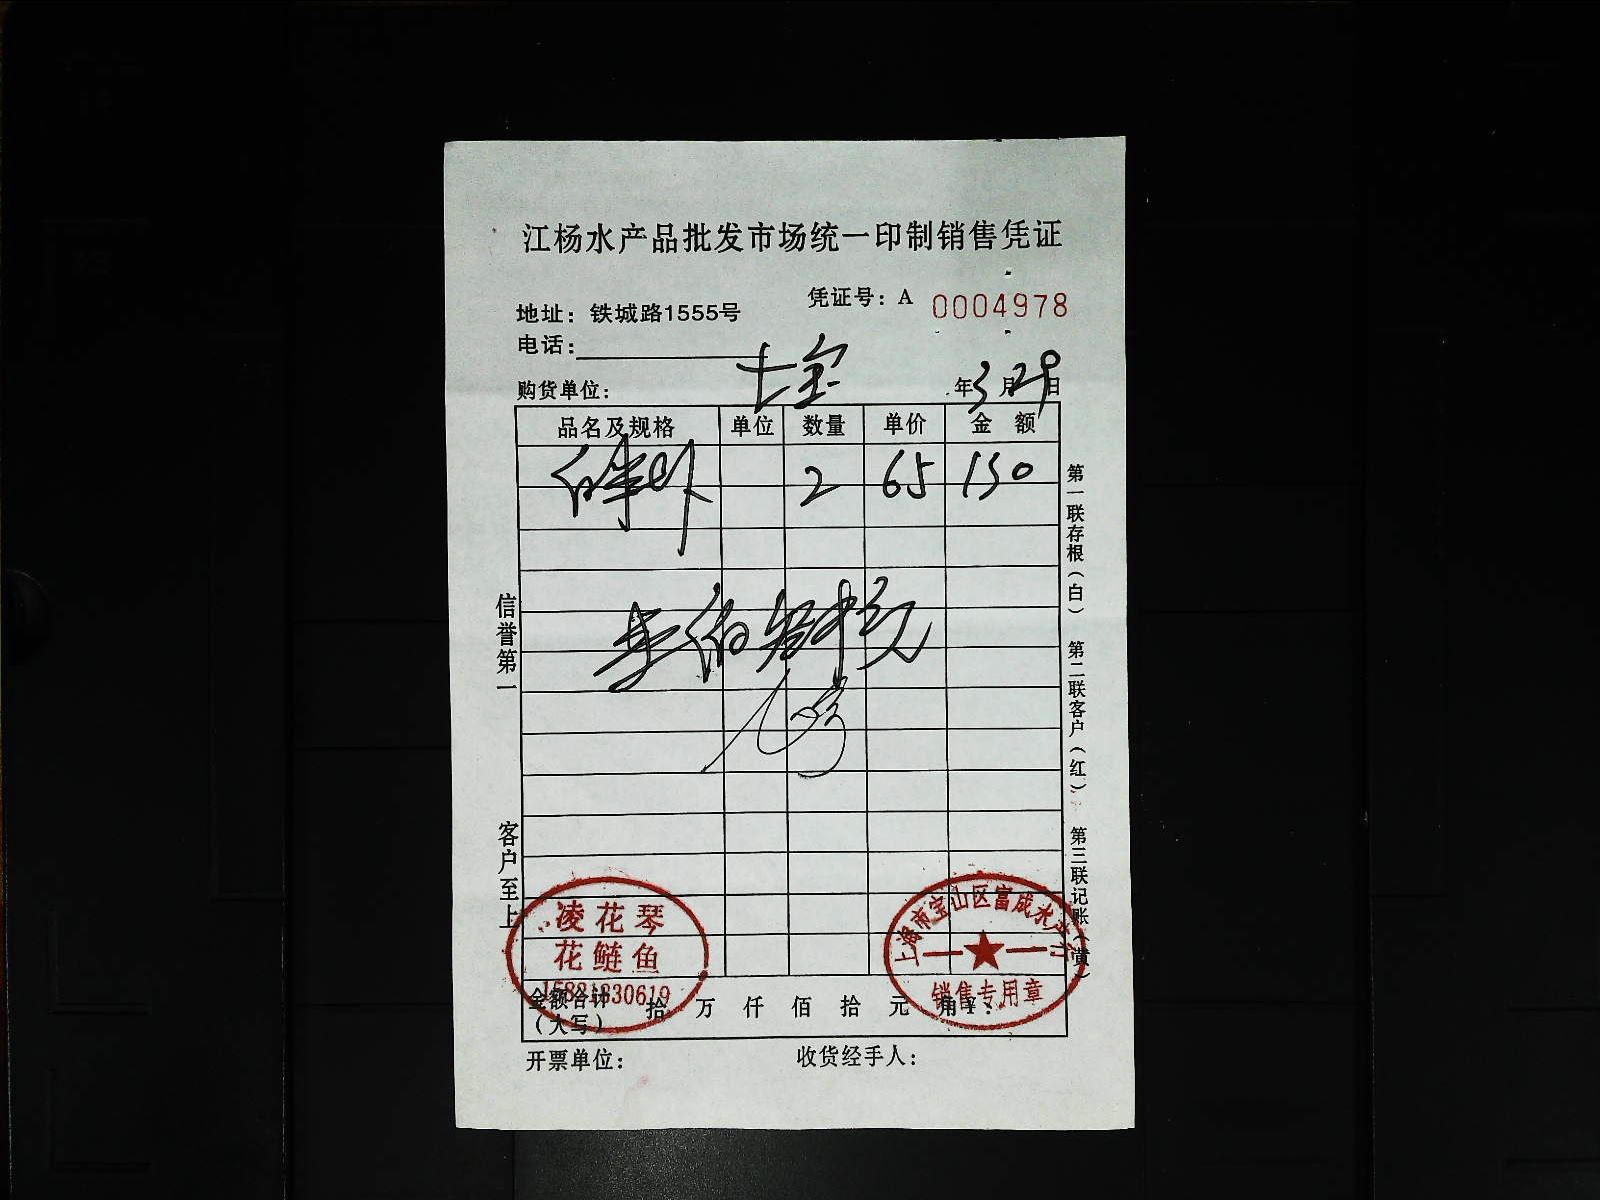 江杨水产品批发市场统一印制销售凭证
凭证号：A 0004978
地址：铁城路1555号
电话：
购货单位：七宝 年3月29日
品名及规格 单位 数量 单价 金额
2 65 130
信誉第一
客户至上
第一联存根（白） 第二联客户（红） 第三联记账（黄）
凌花琴
花鲢鱼
15821830619
上海市宝山区富成水产行
销售专用章
金额合计（大写） 拾 万 仟 佰 拾 元 角 ¥：
开票单位： 收货经手人：